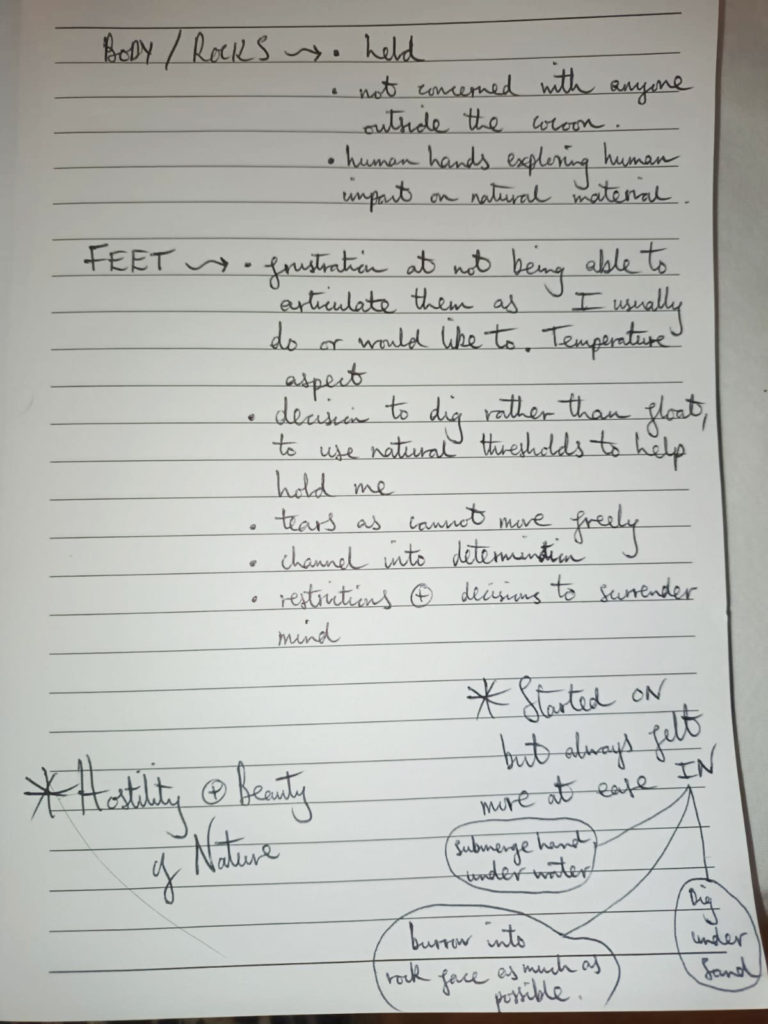 BODY / ROCKS ⟿ • held
• not concerned with anyone
outside the cocoon.
• human hands exploring human
impact on natural material.
FEET ⟿ • frustration at not being able to
articulate them as I usually
do or would like to. Temperature
aspect
• decision to dig rather than float,
to use natural thresholds to help
hold me
• tears as cannot move freely
• channel into determination
• restrictions ⊕ decisions to surrender
mind
* Started ON
but always felt
more at ease IN
* Hostility ⊕ Beauty
of Nature
submerge hand
under water
Dig
under
Sand
burrow into
rock face as much as
possible.